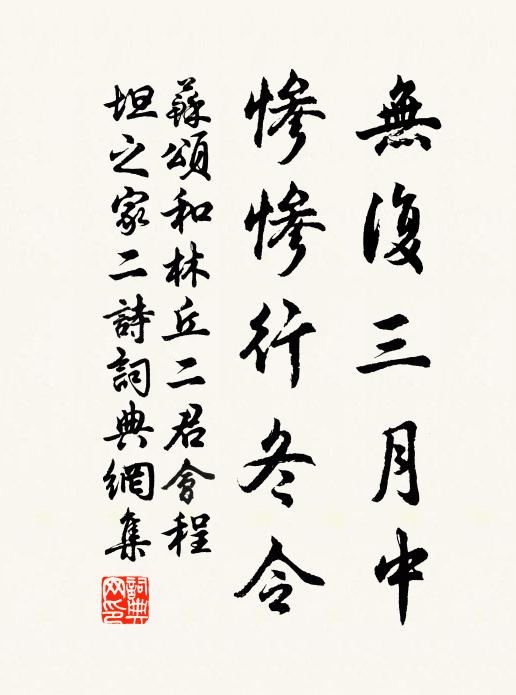 無復三月中
慘慘行冬令
蘇頌和林丘二君會程
坦之家二詩詞典網集
詞典網印